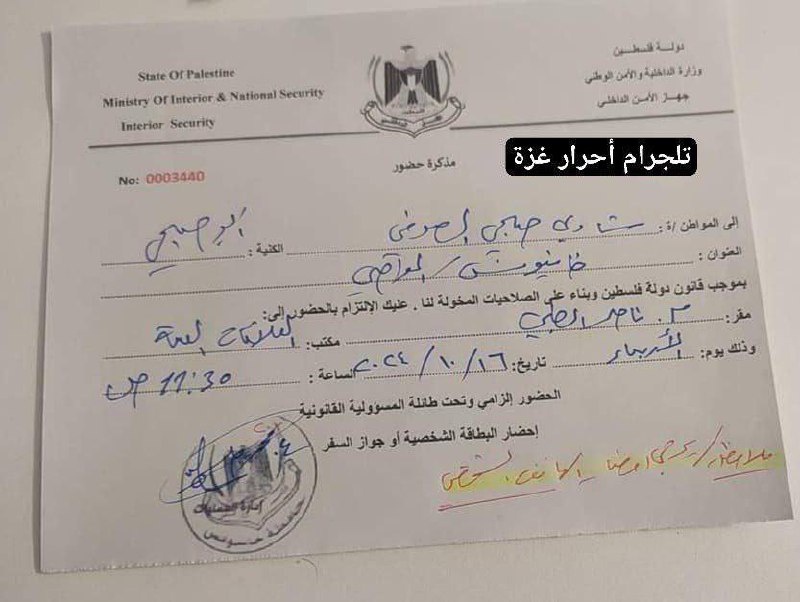 State Of Palestine
Ministry Of Interior & National Security
Interior Security
دولة فلسطين
وزارة الداخلية والأمن الوطني
جهاز الأمن الداخلي
تلجرام أحرار غزة
مذكرة حضور
No: 0003440
إلى المواطن /ة : شادي صبحي الصوفي الكنية : ابو صبحي
العنوان : خانيونس / المواصي
بموجب قانون دولة فلسطين وبناء على الصلاحيات المخولة لنا . عليك الإلتزام بالحضور إلى:
مقر: م. ناصر الطبي مكتب: العلاقات العامة
وذلك يوم: الأربعاء تاريخ: ٢٠٢٤/١٠/١٦ الساعة : 11:30 ص
الحضور إلزامي وتحت طائلة المسؤولية القانونية
إحضار البطاقة الشخصية أو جواز السفر
ملاحظة / يرجى احضار الهاتف الشخصي